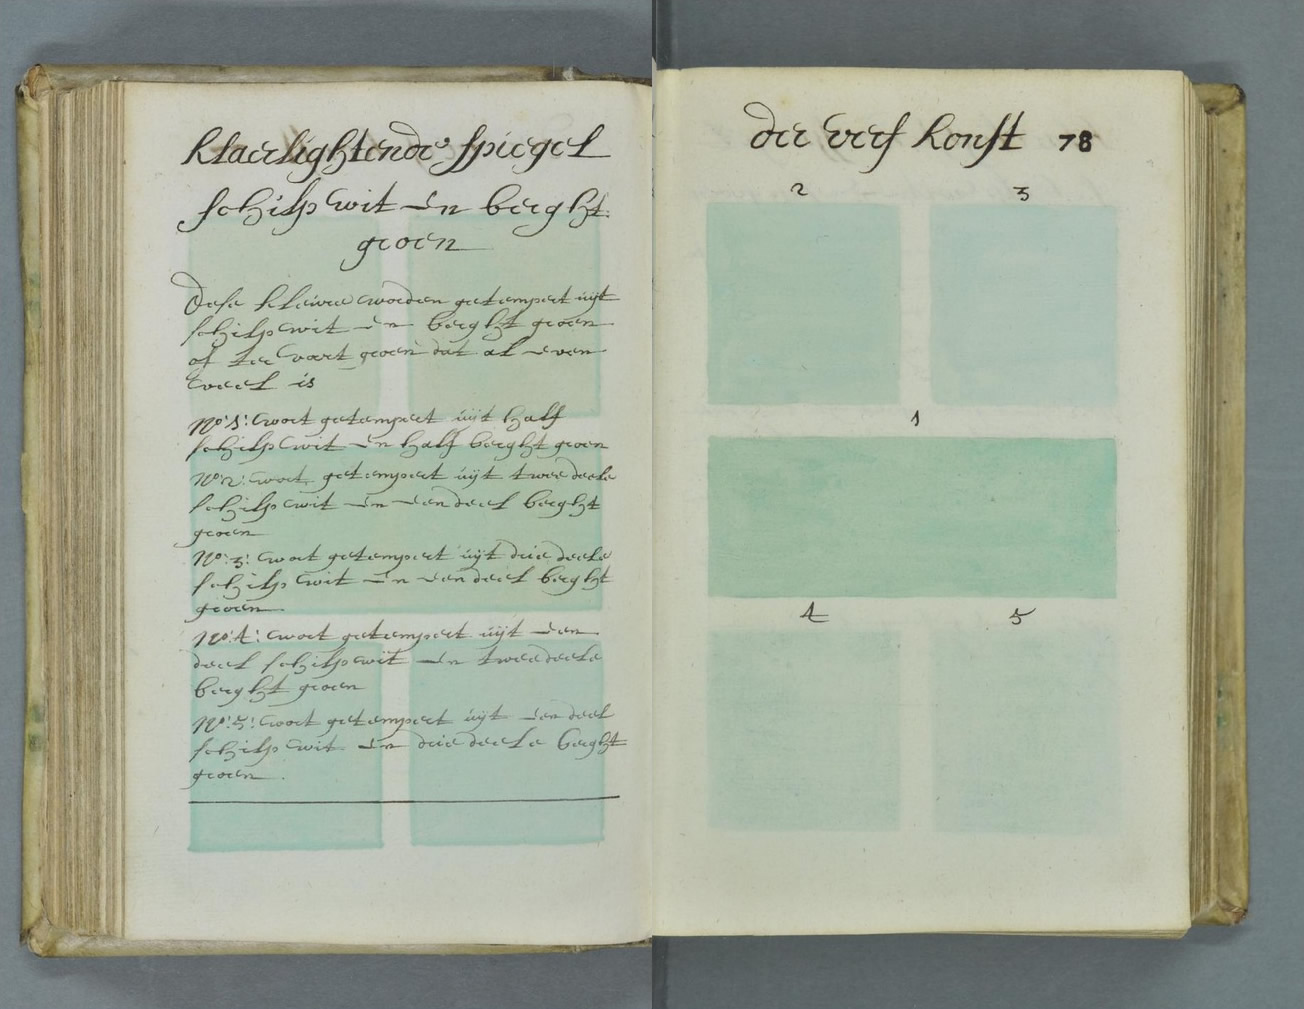 klaerlightende spiegel
schilp wit en berght
groen
Dese kleure worden getempert uijt
schilp wit en berght groen
of ter voort groen dat al even
veel is
No: 1: wort getempert uijt half
schilp wit en half berght groen
No: 2: wort getempert uijt twee deele
schilp wit en een deel berght
groen
No: 3: wort getempert uijt drie deele
schilp wit en een deel berght
groen
No: 4: wort getempert uijt een
deel schilp wit en twee deele
berght groen
No: 5: wort getempert uijt een deel
schilp wit en drie deele berght
groen .
der verf konst 78
2 3
1
4 5